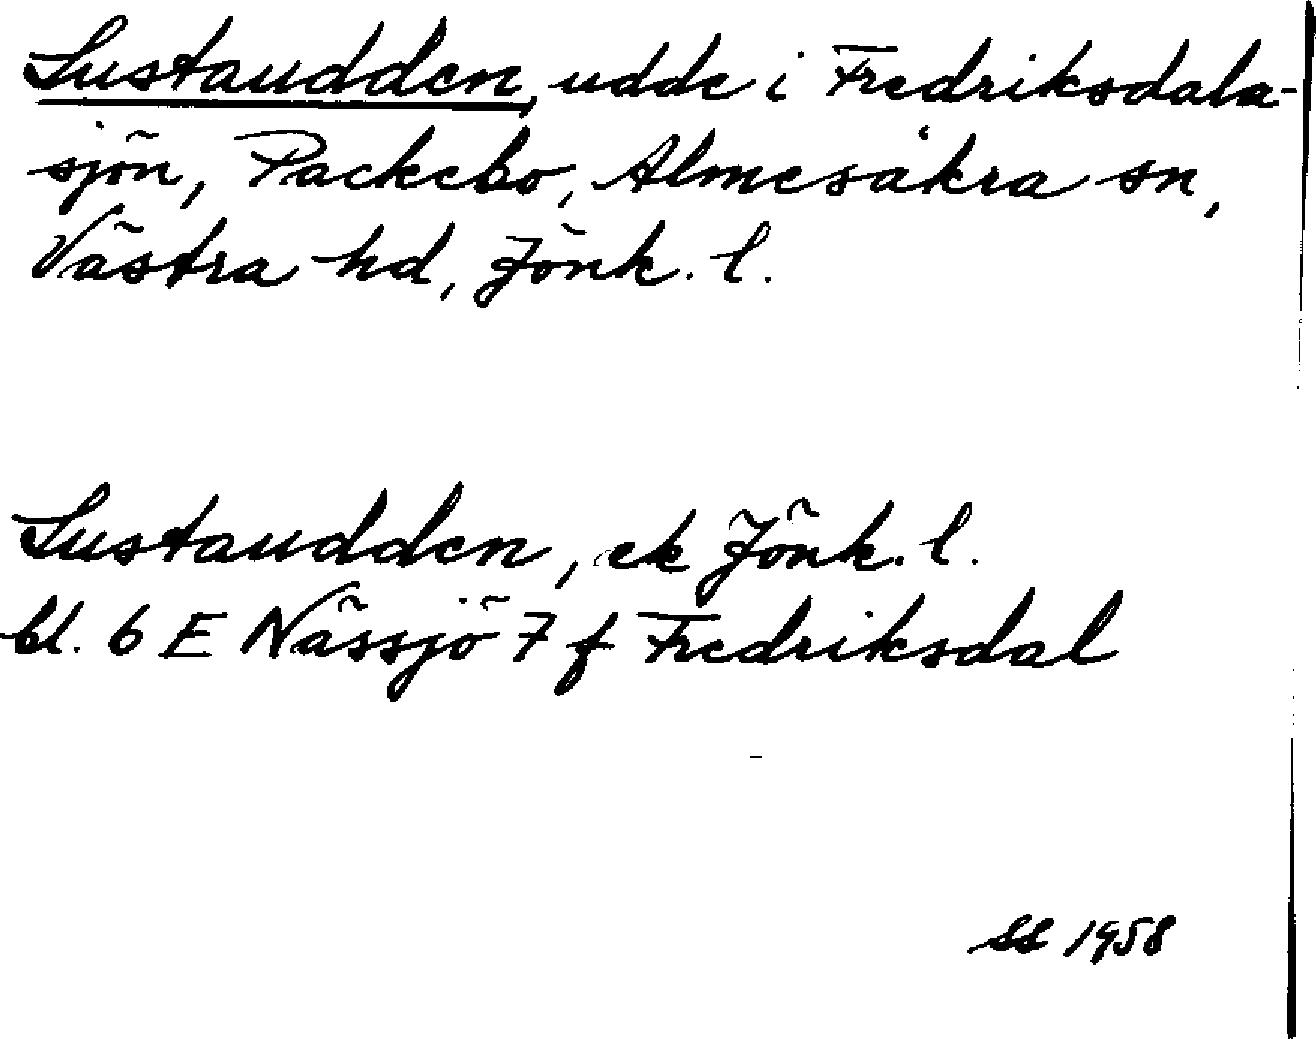 Lustaudden, udde i Fredriksdala-
sjön, Packebo, Almesåkra sn,
Västra hd, Jönk. l.
Lustaudden, ek Jönk. l.
bl. 6 E Nässjö 7 f Fredriksdal
SS 1958